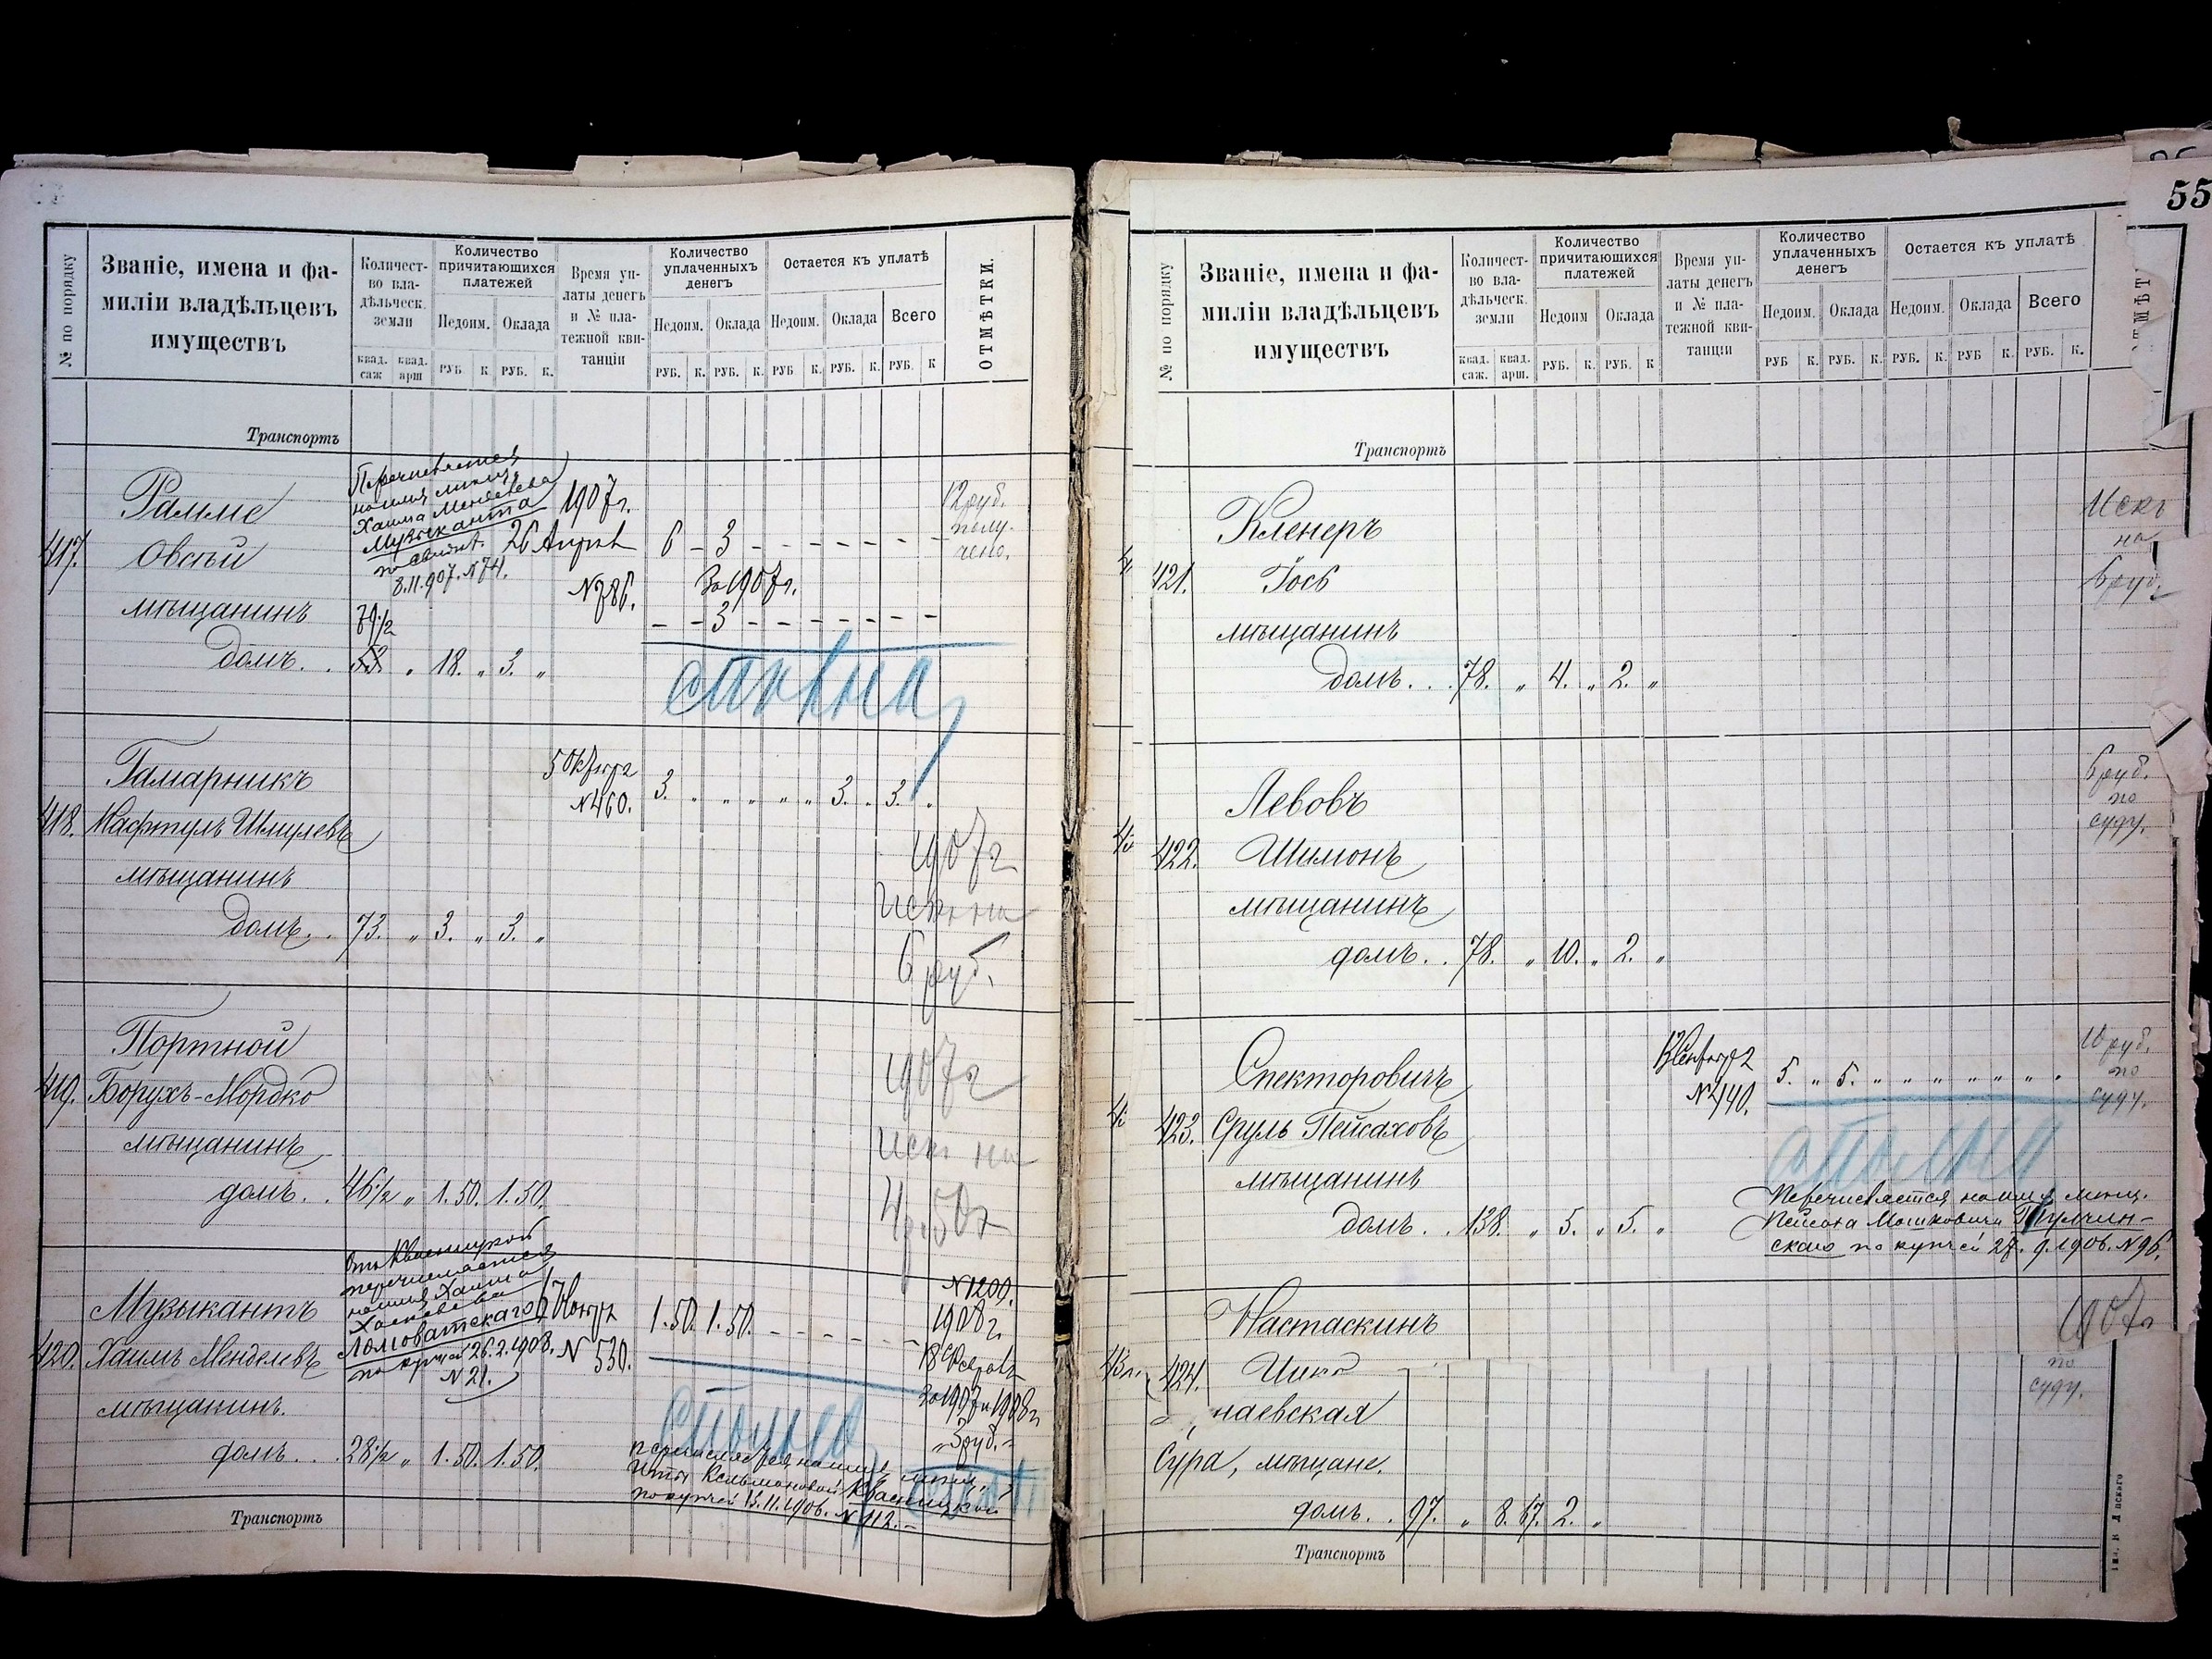 55
№ по порядку
Званіе, имена и фа-
миліи владѣльцевъ
имуществъ
Количест-
во вла-
дѣльческ.
земли
квад. саж
квад. арш
Количество
причитающихся
платежей
Недоим. Оклада
РУБ К РУБ. К.
Время уп-
латы денегъ
и № пла-
тежной кви-
танціи
Количество
уплаченныхъ
денегъ
Недоим. Оклада
РУБ. К. РУБ. К.
Остается къ уплатѣ
Недоим. Оклада Всего
РУБ К. РУБ. К. РУБ. К
ОТМѢТКИ.
Транспортъ
Рамме
417. Овсѣй
мѣщанинъ
домъ. . 53 " 18. " 3. "
79 1/2
Перечисляется
на имя мѣщ.
Хаима Менделева
Музыканта
по свидѣт.
8.11.907. N 74.
1907 г.
26 Апрѣля 6 - 3 - - - - - - -
N 286.
За 1907 г.
- - 3 - - - - - - -
12 руб.
полу-
чено.
Гамарникъ
418. Нафтуль Шмулевъ
мѣщанинъ
домъ. . 73. " 3. " 3. "
5 Октября
N 460. 3. " " " " " 3. " 3. "
1907 г
Искъ на
6 руб.
Портной
419. Борухъ-Мордко
мѣщанинъ
домъ. . 46 1/2 " 1.50. 1.50.
1907 г
искъ на
4 р. 50 к
Музыкантъ
420. Хаимъ Менделевъ
мѣщанинъ.
домъ. . . 28 1/2 " 1.50. 1.50.
Отъ Квасницкой
перечисляется
на имя Хаима
Хаскелева
Ломоватскаго
по купчей 26.2.1908.
N 21.
Ноября
N 530.
1.50. 1.50. - - - - - -
N 1200.
1908 г.
18 Февраля
За 1907 и 1908 г
"3 руб."
перечисляется на имя мѣщ.
Иты Кельмановой Квасницкой
по купчей 13.11.1906. N 112. -
Транспортъ
№ по порядку
Званіе, имена и фа-
миліи владѣльцевъ
имуществъ
Количест-
во вла-
дѣльческ.
земли
квад. саж.
квад. арш.
Количество
причитающихся
платежей
Недоим Оклада
РУБ. К. РУБ. К
Время уп-
латы денегъ
и № пла-
тежной кви-
танціи
Количество
уплаченныхъ
денегъ
Недоим. Оклада
РУБ К. РУБ. К.
Остается къ уплатѣ
Недоим. Оклада Всего
РУБ. К. РУБ К. РУБ. К.
Транспортъ
Кленеръ
421. Іось
мѣщанинъ
домъ. . . 78. " 4. " 2. "
Искъ
на
6 руб.
Левовъ
422. Шимонъ
мѣщанинъ
домъ. . 78. " 10. " 2. "
6 руб.
по
суду.
Спекторовичъ
423. Сруль Пейсаховъ
мѣщанинъ
домъ. . 138. " 5. " 5. "
Сентября
N 440.
5. " 5. " " " " " " "
10 руб.
по
суду.
Перечисляется на имя мѣщ.
Пейсаха Мошковича Тульчин-
скаго по купчей 27.9.1906. N 96.
Настаскинъ
424. Ицко
наевская
Сура, мѣщане.
домъ. . 97. " 8. 67. 2. "
1907 г
по
суду.
Транспортъ